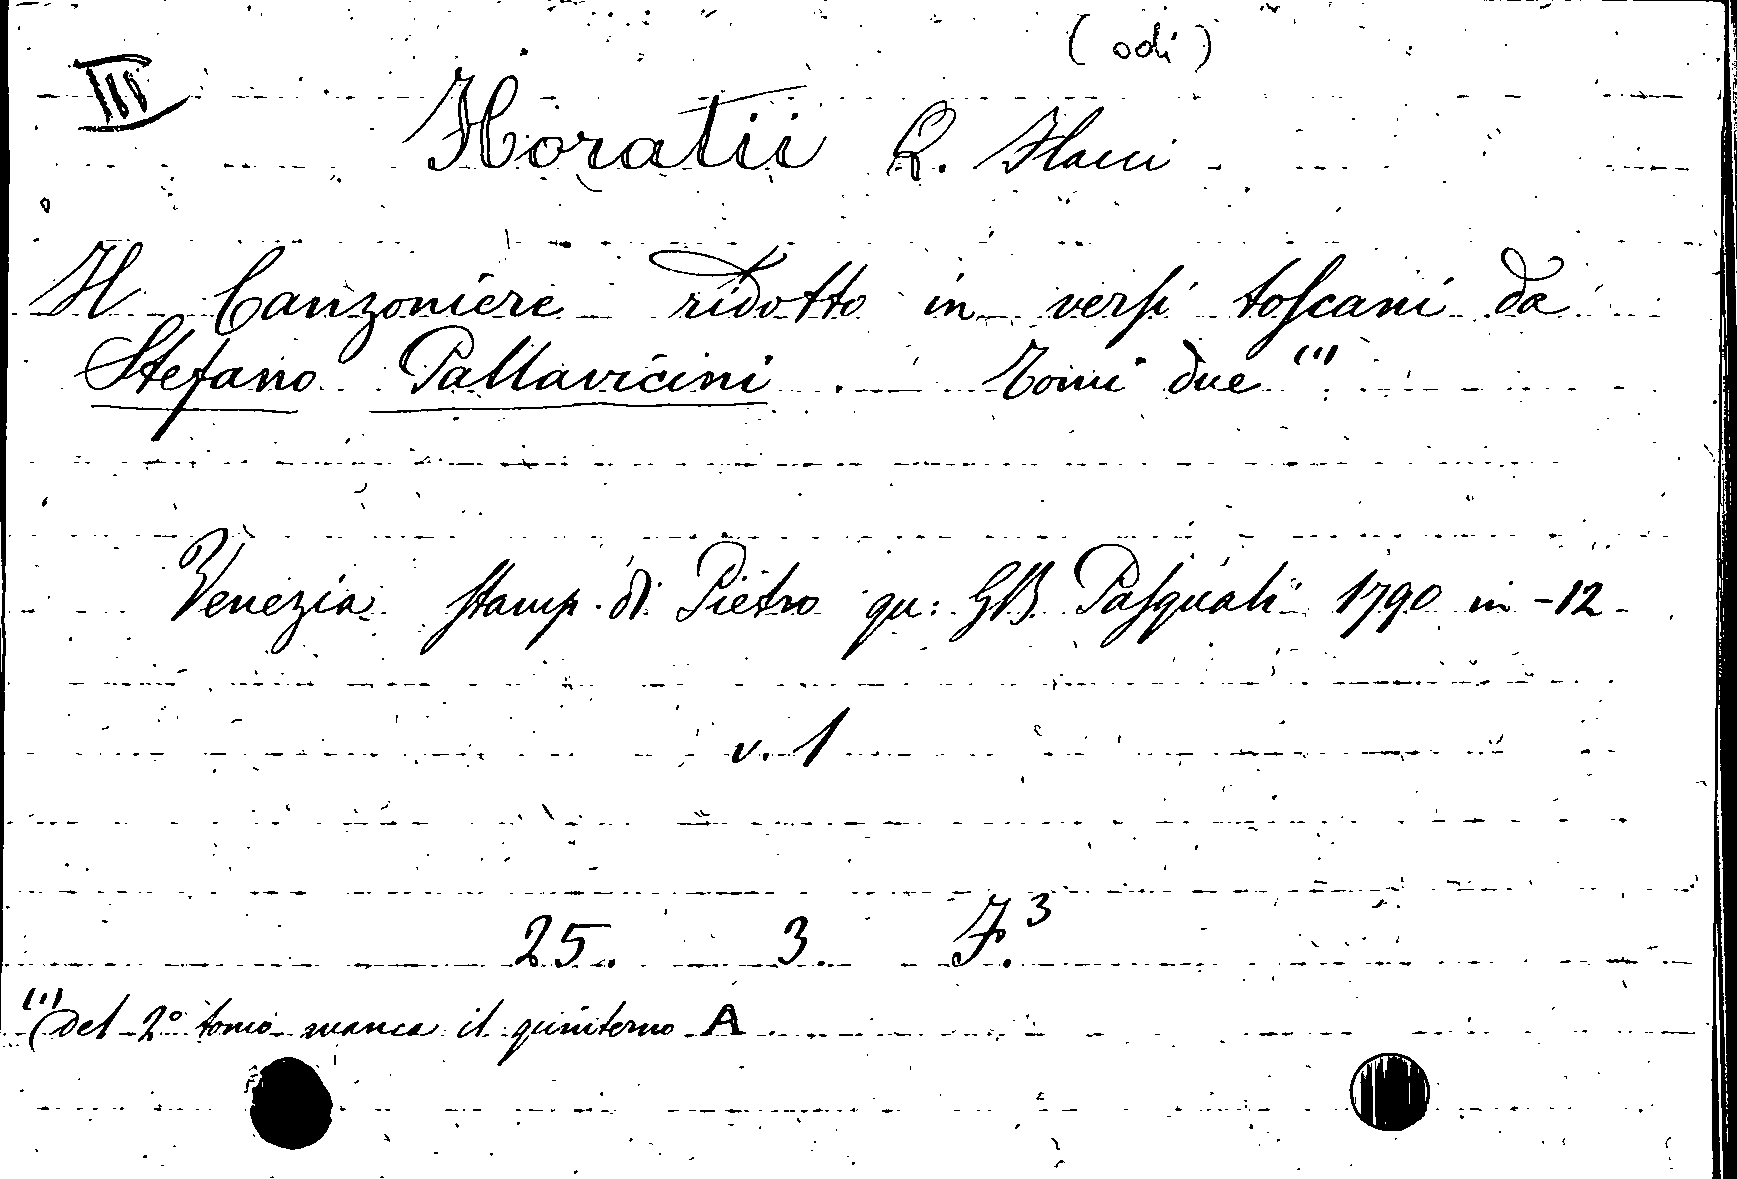 (odi)
III
Horatii Q. Flacci
Il Canzoniere ridotto in versi toscani da
Stefano Pallavicini. Tomi due (1)
Venezia stamp. di Pietro qu: GB. Pasquali 1790 in -12
v. 1
25. 3. F.3
(1) Del 2° tomo manca il quinterno A